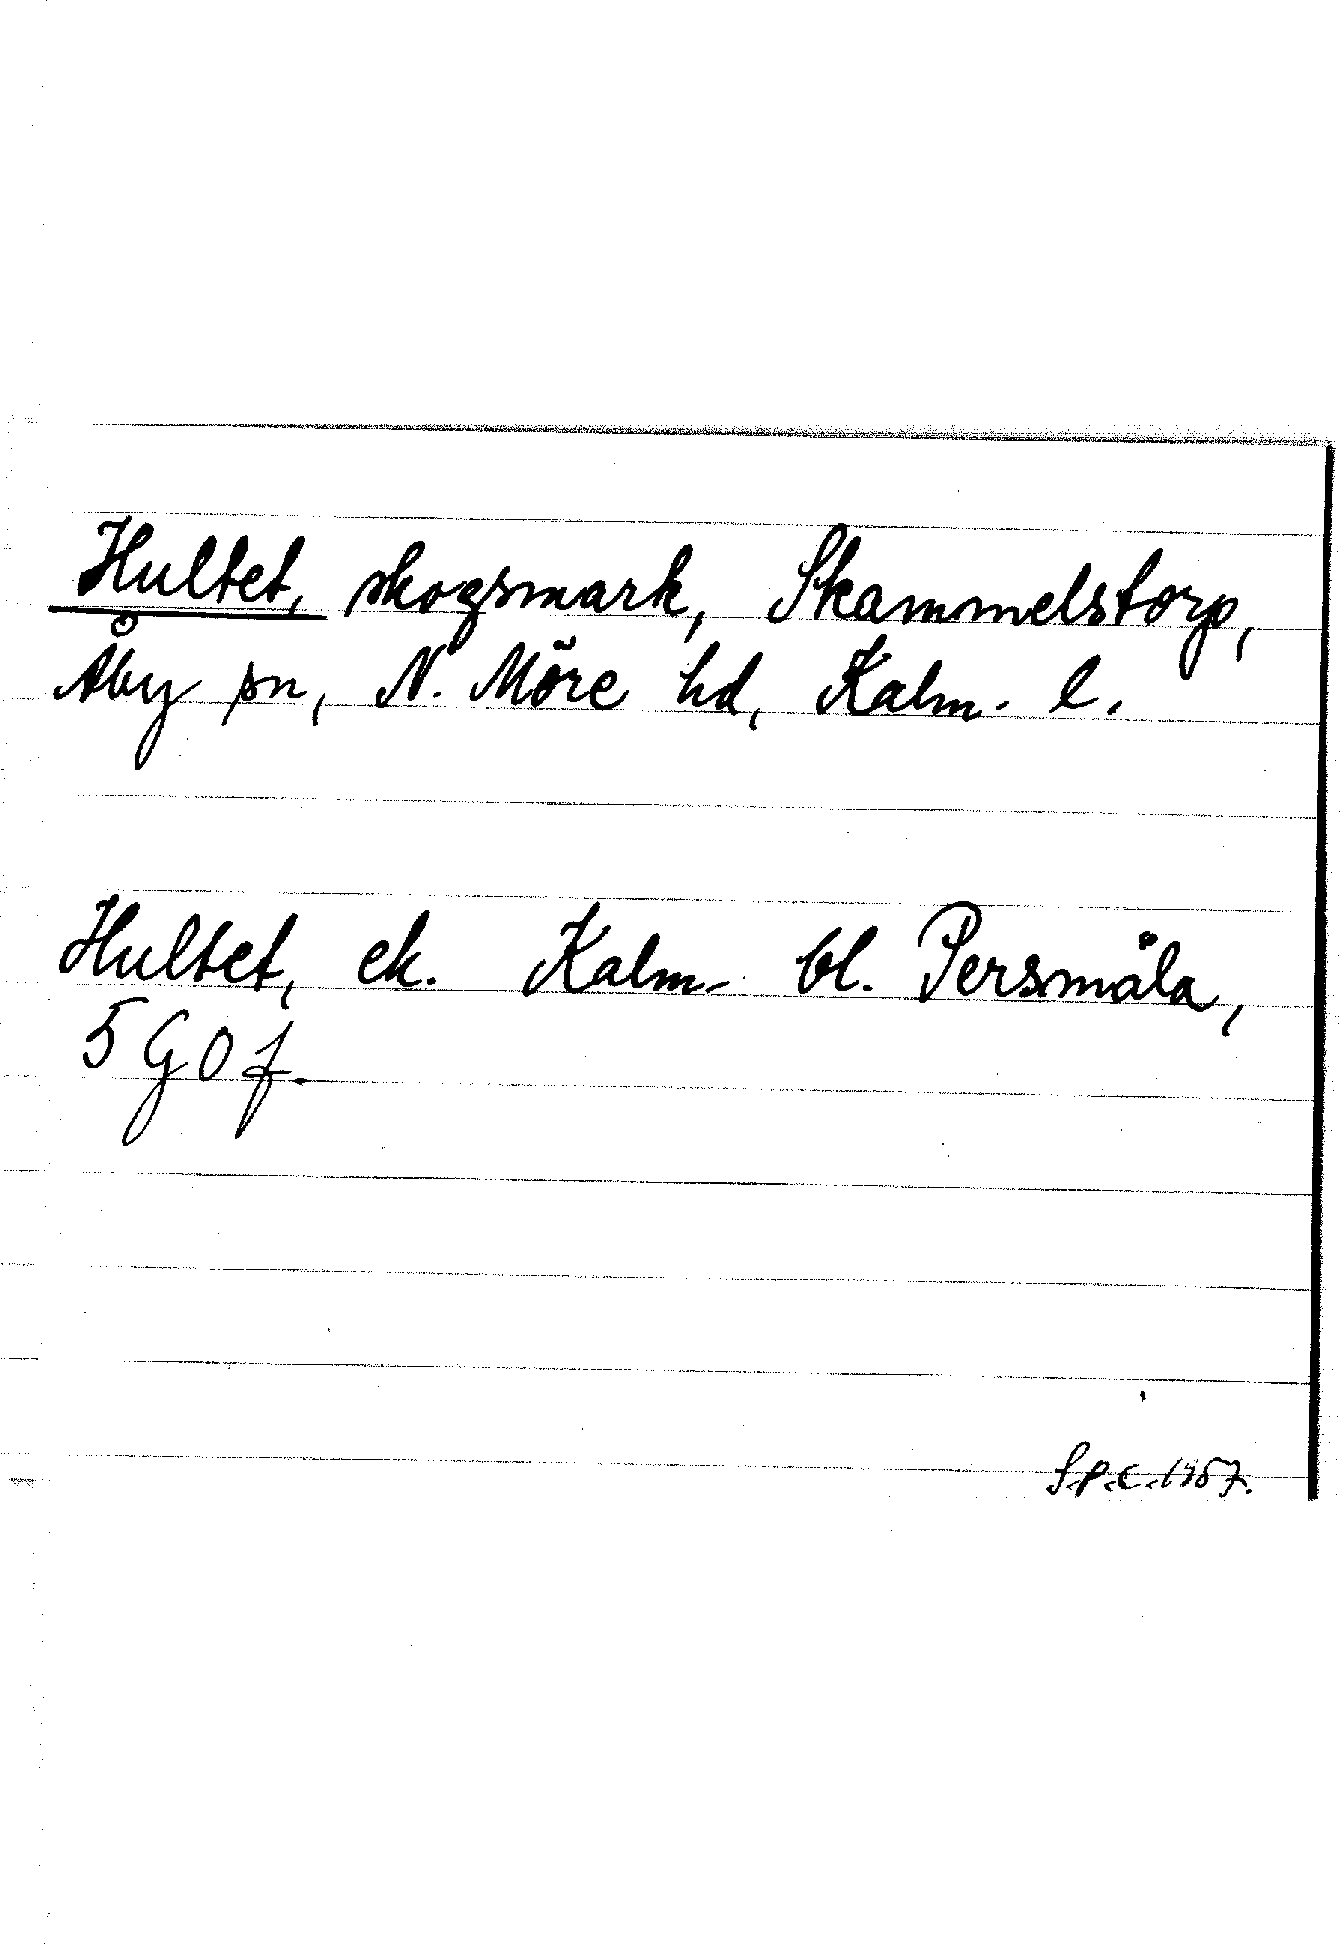 Hultet, skogsmark, Skammelstorp,
Åby sn, N. Möre hd, Kalm. l.
Hultet, ek. Kalm. bl. Persmåla,
5 G 0 f.
S.P.C. 1957.